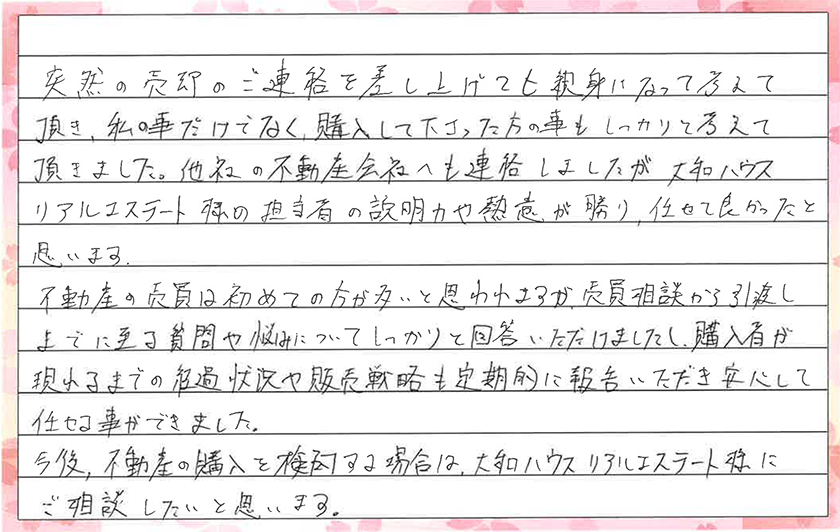 突然の売却のご連絡を差し上げても親身になって考えて
頂き、私の事だけでなく、購入して下さった方の事もしっかりと考えて
頂きました。他社の不動産会社へも連絡しましたが 大和ハウス
リアルエステート様の担当者の説明力や熱意が勝り、任せて良かったと
思います。
不動産の売買は初めての方が多いと思われますが、売買相談から引渡し
までに至る質問や悩みについてしっかりと回答いただけましたし、購入者が
現れるまでの経過状況や販売戦略も定期的に報告いただき安心して
任せる事ができました。
今後、不動産の購入を検討する場合は、大和ハウスリアルエステート様に
ご相談したいと思います。